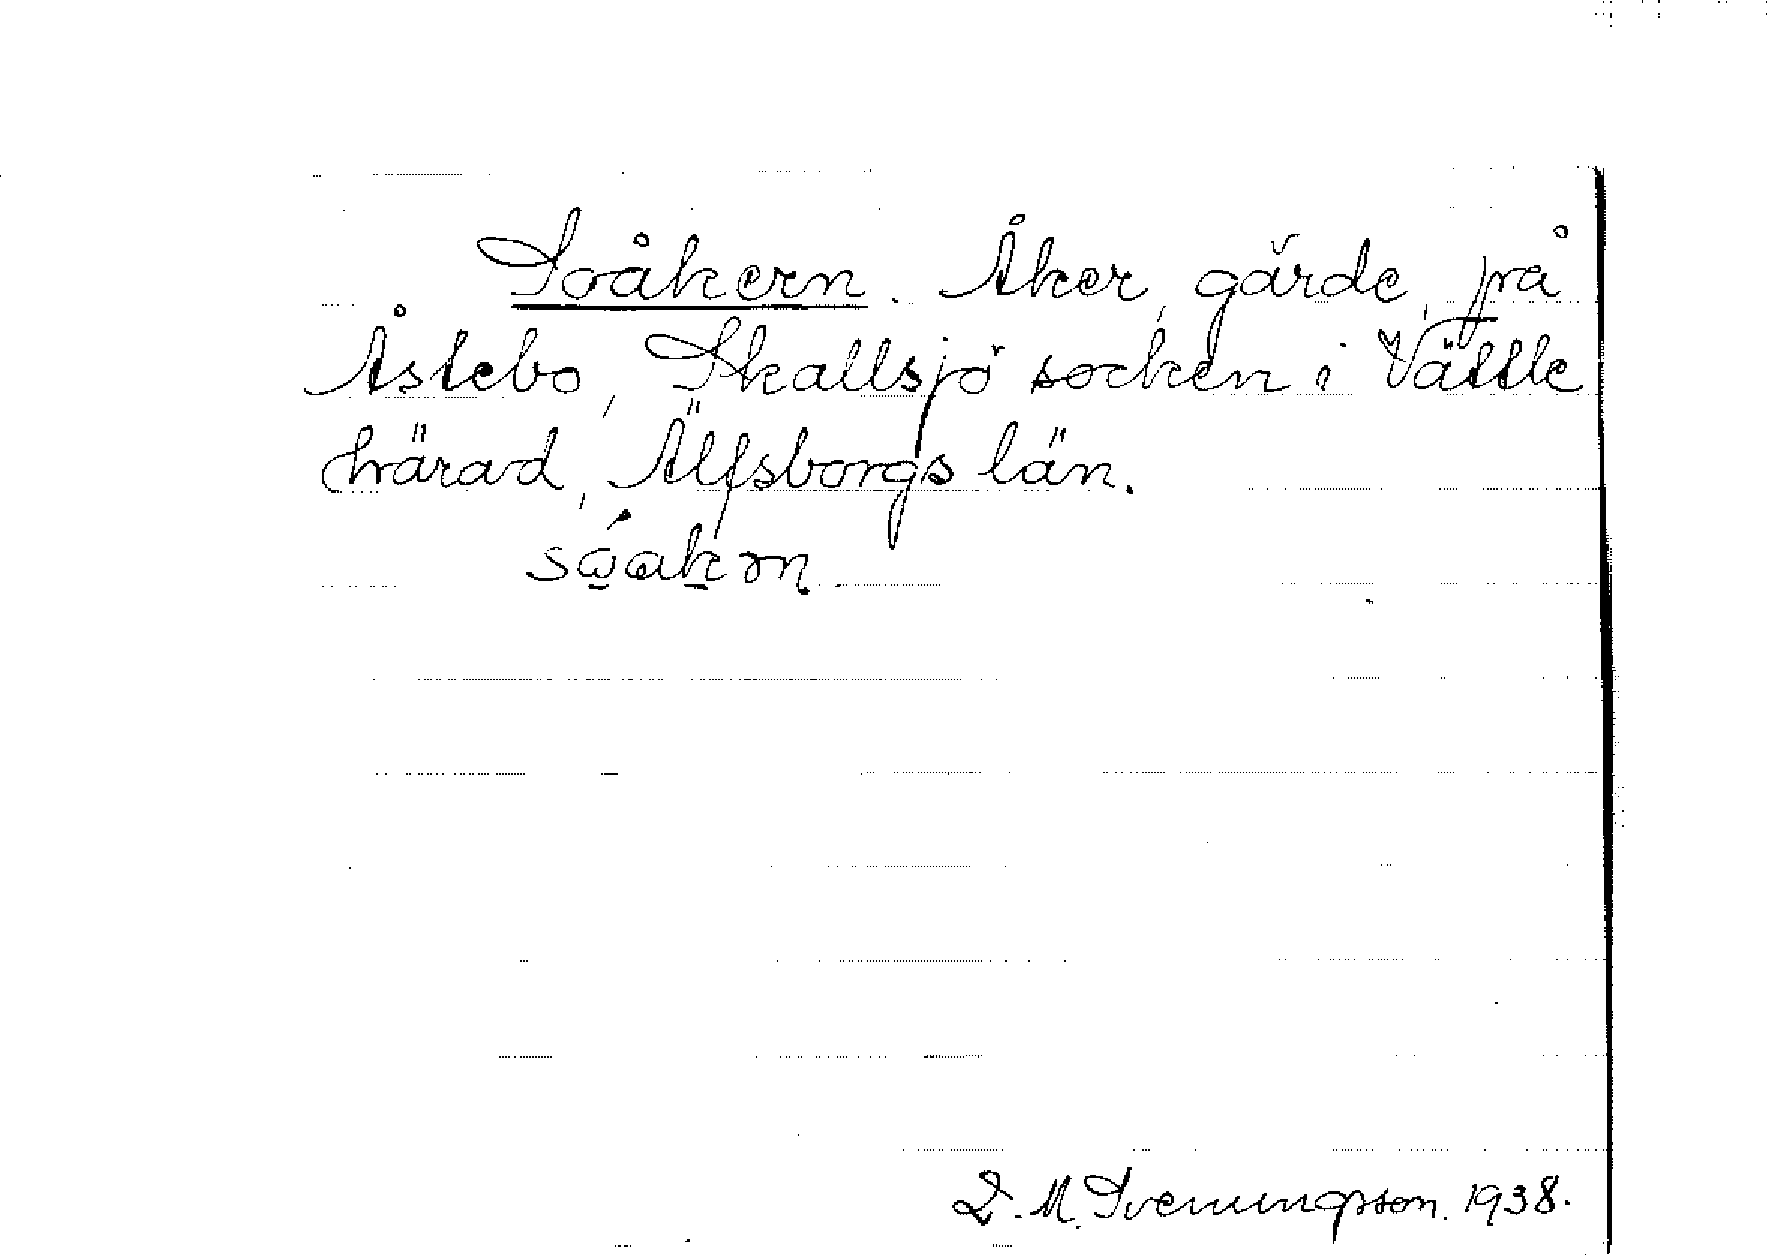 Soåkern. Åker, gärde, på
Åstebo, Skallsjö socken i Vättle
härad, Älfsborgs län.
D. M. Svenungsson. 1938.